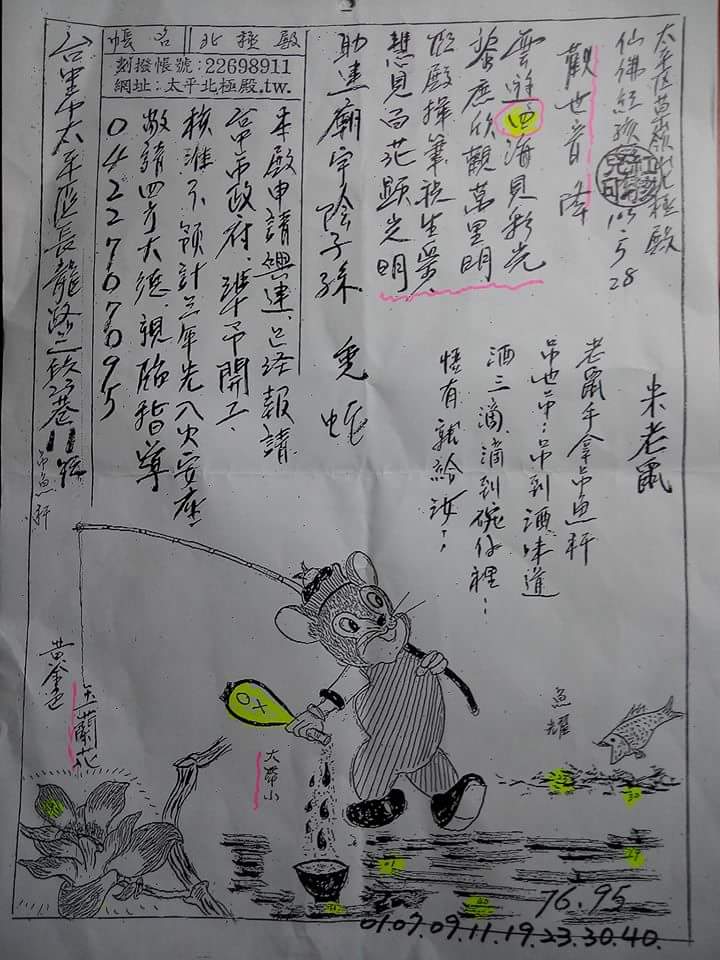 太平區北極殿
仙佛 105.5.28
觀世音降
雲遊四海見光
黎庶欣觀萬里明
殿揮筆生
慧見百花顯光明
助建廟宇蔭子孫 兔蛇
帳名 北極殿
劃撥帳號:22698911
網址:太平北極殿.tw.
本殿申請興建已经報請
台中市政府、準予開工
核准不領計三年先入火安座
敬請四方大德親臨指導
0422707095
台中太平區長龍路三段23巷11號
米老鼠
老鼠手拿吊魚杆
吊也吊:吊到酒味道
酒三滴滴到碗仔裡…
悟有就給汝:
吊魚杆
黃金色
玉蘭花
大笨小
魚耀
OX
76.95
01.07.09.11.19.23.30.40.